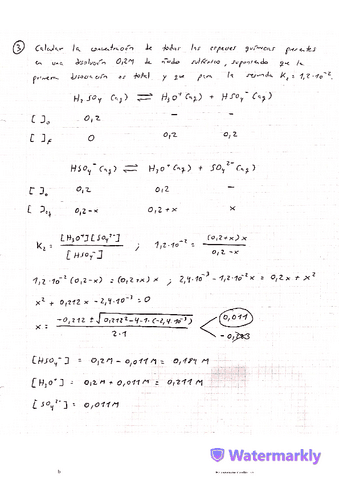 3 Calcular la concentración de todas las especies químicas presentes
en una disolución 0,2M de ácido sulfúrico, suponiendo que la
primera disociación es total y que para la segunda K₂ = 1,2·10⁻².
H₂SO₄ (aq) ⇌ H₃O⁺ (aq) + HSO₄⁻ (aq)
[ ]₀ 0,2 - -
[ ]f 0 0,2 0,2
HSO₄⁻ (aq) ⇌ H₃O⁺ (aq) + SO₄²⁻ (aq)
[ ]₀ 0,2 0,2 -
[ ] 0,2-x 0,2+x x
K₂ = [H₃O⁺][SO₄²⁻] / [HSO₄⁻] ; 1,2·10⁻² = (0,2+x)x / 0,2-x
1,2·10⁻² (0,2-x) = (0,2+x)x ; 2,4·10⁻³ - 1,2·10⁻² x = 0,2x + x²
x² + 0,212x - 2,4·10⁻³ = 0
x = -0,212 ± √0,212² - 4·1·(-2,4·10⁻³) / 2·1 0,011
[HSO₄⁻] = 0,2M - 0,011M = 0,189M
[H₃O⁺] = 0,2M + 0,011M = 0,211M
[SO₄²⁻] = 0,011M
Watermarkly